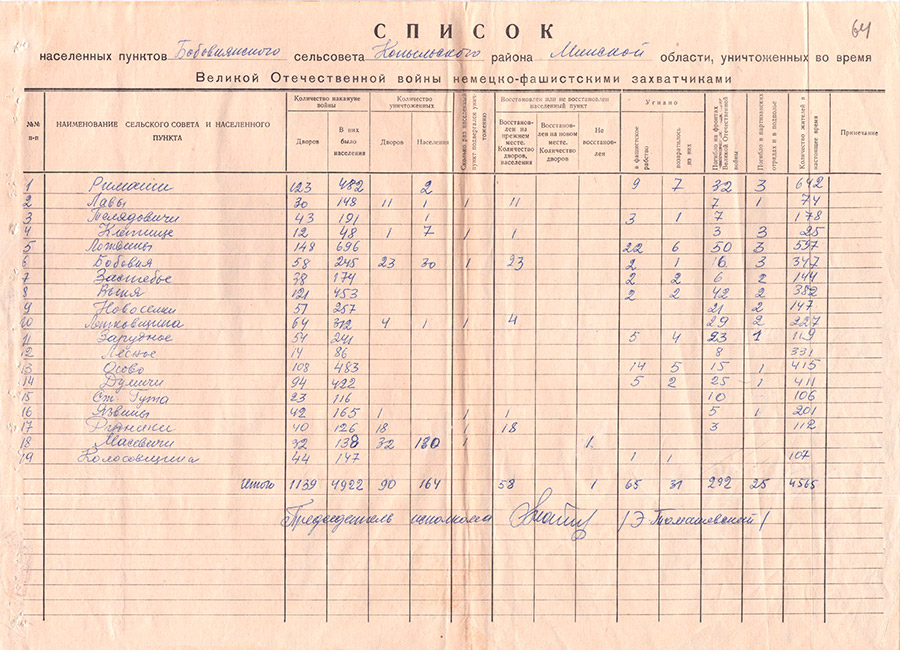 64
СПИСОК
населенных пунктов Бобовнянского сельсовета Копыльского района Минской области, уничтоженных во время
Великой Отечественной войны немецко-фашистскими захватчиками
№№ п-п | НАИМЕНОВАНИЕ СЕЛЬСКОГО СОВЕТА И НАСЕЛЕННОГО ПУНКТА | Количество накануне войны | Количество уничтоженных | Сколько раз населенный пункт подвергался уничтожению | Восстановлен или не восстановлен населенный пункт | Угнано | Погибло на фронтах Великой Отечественной войны | Погибло в партизанских отрядах и в подполье | Количество жителей в настоящее время | Примечание
Дворов | В них было населения | Дворов | Населения | Восстановлен на прежнем месте. Количество дворов, населения | Восстановлен на новом месте. Количество дворов | Не восстановлен | в фашистское рабство | возвратилось из них
1 Римаши 123 482 2 9 7 32 3 642
2 Лавы 30 148 11 1 1 11 7 1 74
3 Телядовичи 43 191 1 3 1 7 178
4 Клетище 12 48 1 7 1 1 3 3 25
5 148 696 22 6 50 3 597
6 Бобовня 58 245 23 30 1 23 2 1 6 3 347
7 38 174 2 2 6 2 144
8 Выня 121 453 2 2 42 2 352
9 Новоселки 57 257 21 2 147
10 64 312 4 1 1 4 29 2 227
11 Зарудное 54 241 5 4 23 1 119
12 Лесное 14 86 8 331
13 Осово 108 483 14 5 15 1 415
14 Думичи 94 422 5 2 25 1 411
15 Ст. Гута 23 116 10 106
16 Язвины 42 165 1 1 1 5 1 201
17 Рудники 40 126 18 1 18 3 112
18 Масевичи 32 138 32 130 1 1
19 Колосовщина 44 147 1 1 107
Итого 1139 4922 90 164 58 1 65 31 292 25 4565
Председатель исполкома /Э Томашевский/